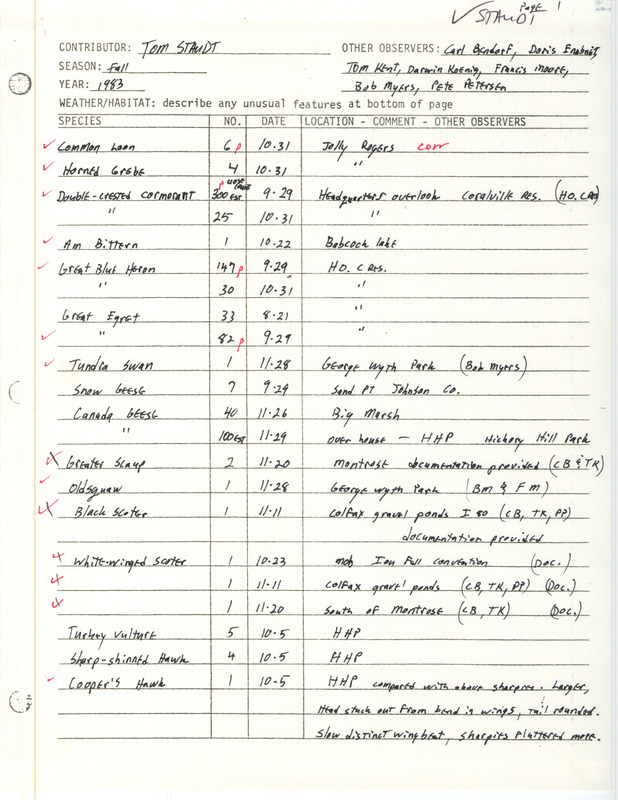 Page 1
✓ STAUDT
CONTRIBUTOR: TOM STAUDT OTHER OBSERVERS: Carl Bendorf, Doris Enabnit,
SEASON: Fall Tom Kent, Darwin Koenig, Francis Moore,
YEAR: 1983 Bob Myers, PETE PETERSEN
WEATHER/HABITAT: describe any unusual features at bottom of page
SPECIES NO. DATE LOCATION - COMMENT - OTHER OBSERVERS
✓ Common Loon 6 p 10.31 Jolly Rogers corr
✓ Horned Grebe 4 10.31 "
✓ Double-crested Cormorant 300 EST p 9-29 Headquarters overlook Coralville Res. (HO. C RES)
" 25 10.31 "
✓ Am Bittern 1 10.22 Babcock lake
✓ Great Blue Heron 147 p 9.29 HO. C RES.
" 30 10.31 "
Great Egret 33 8-21 "
✓ " 82 p 9-29 "
✓ Tundra Swan 1 11.28 George Wyth Park (Bob Myers)
Snow GEESE 7 9-29 Sand PT Johnson Co.
Canada GEESE 40 11-26 Big Marsh
" 100 EST 11-29 over house - HHP Hickory Hill Park
X Greater Scaup 2 11-20 Montrose documentation provided (CB & TK)
✓ Oldsquaw 1 11-28 George Wyth Park (BM & FM)
X Black Scoter 1 11-11 Colfax gravel ponds I 80 (CB, TK, PP)
documentation provided
X White-winged Scoter 1 10.23 Iou Fall convention (Doc.)
X 1 11-11 Colfax gravel ponds (CB, TK, PP) (Doc.)
X 1 11-20 South of Montrose (CB, TK) (Doc.)
Turkey Vulture 5 10-5 HHP
Sharp-shinned Hawk 4 10.5 HHP
✓ Cooper's Hawk 1 10-5 HHP compared with above sharpies. Larger,
Head stuck out from bend in wings, tail rounded.
Slow distinct wingbeat, sharpies fluttered more.